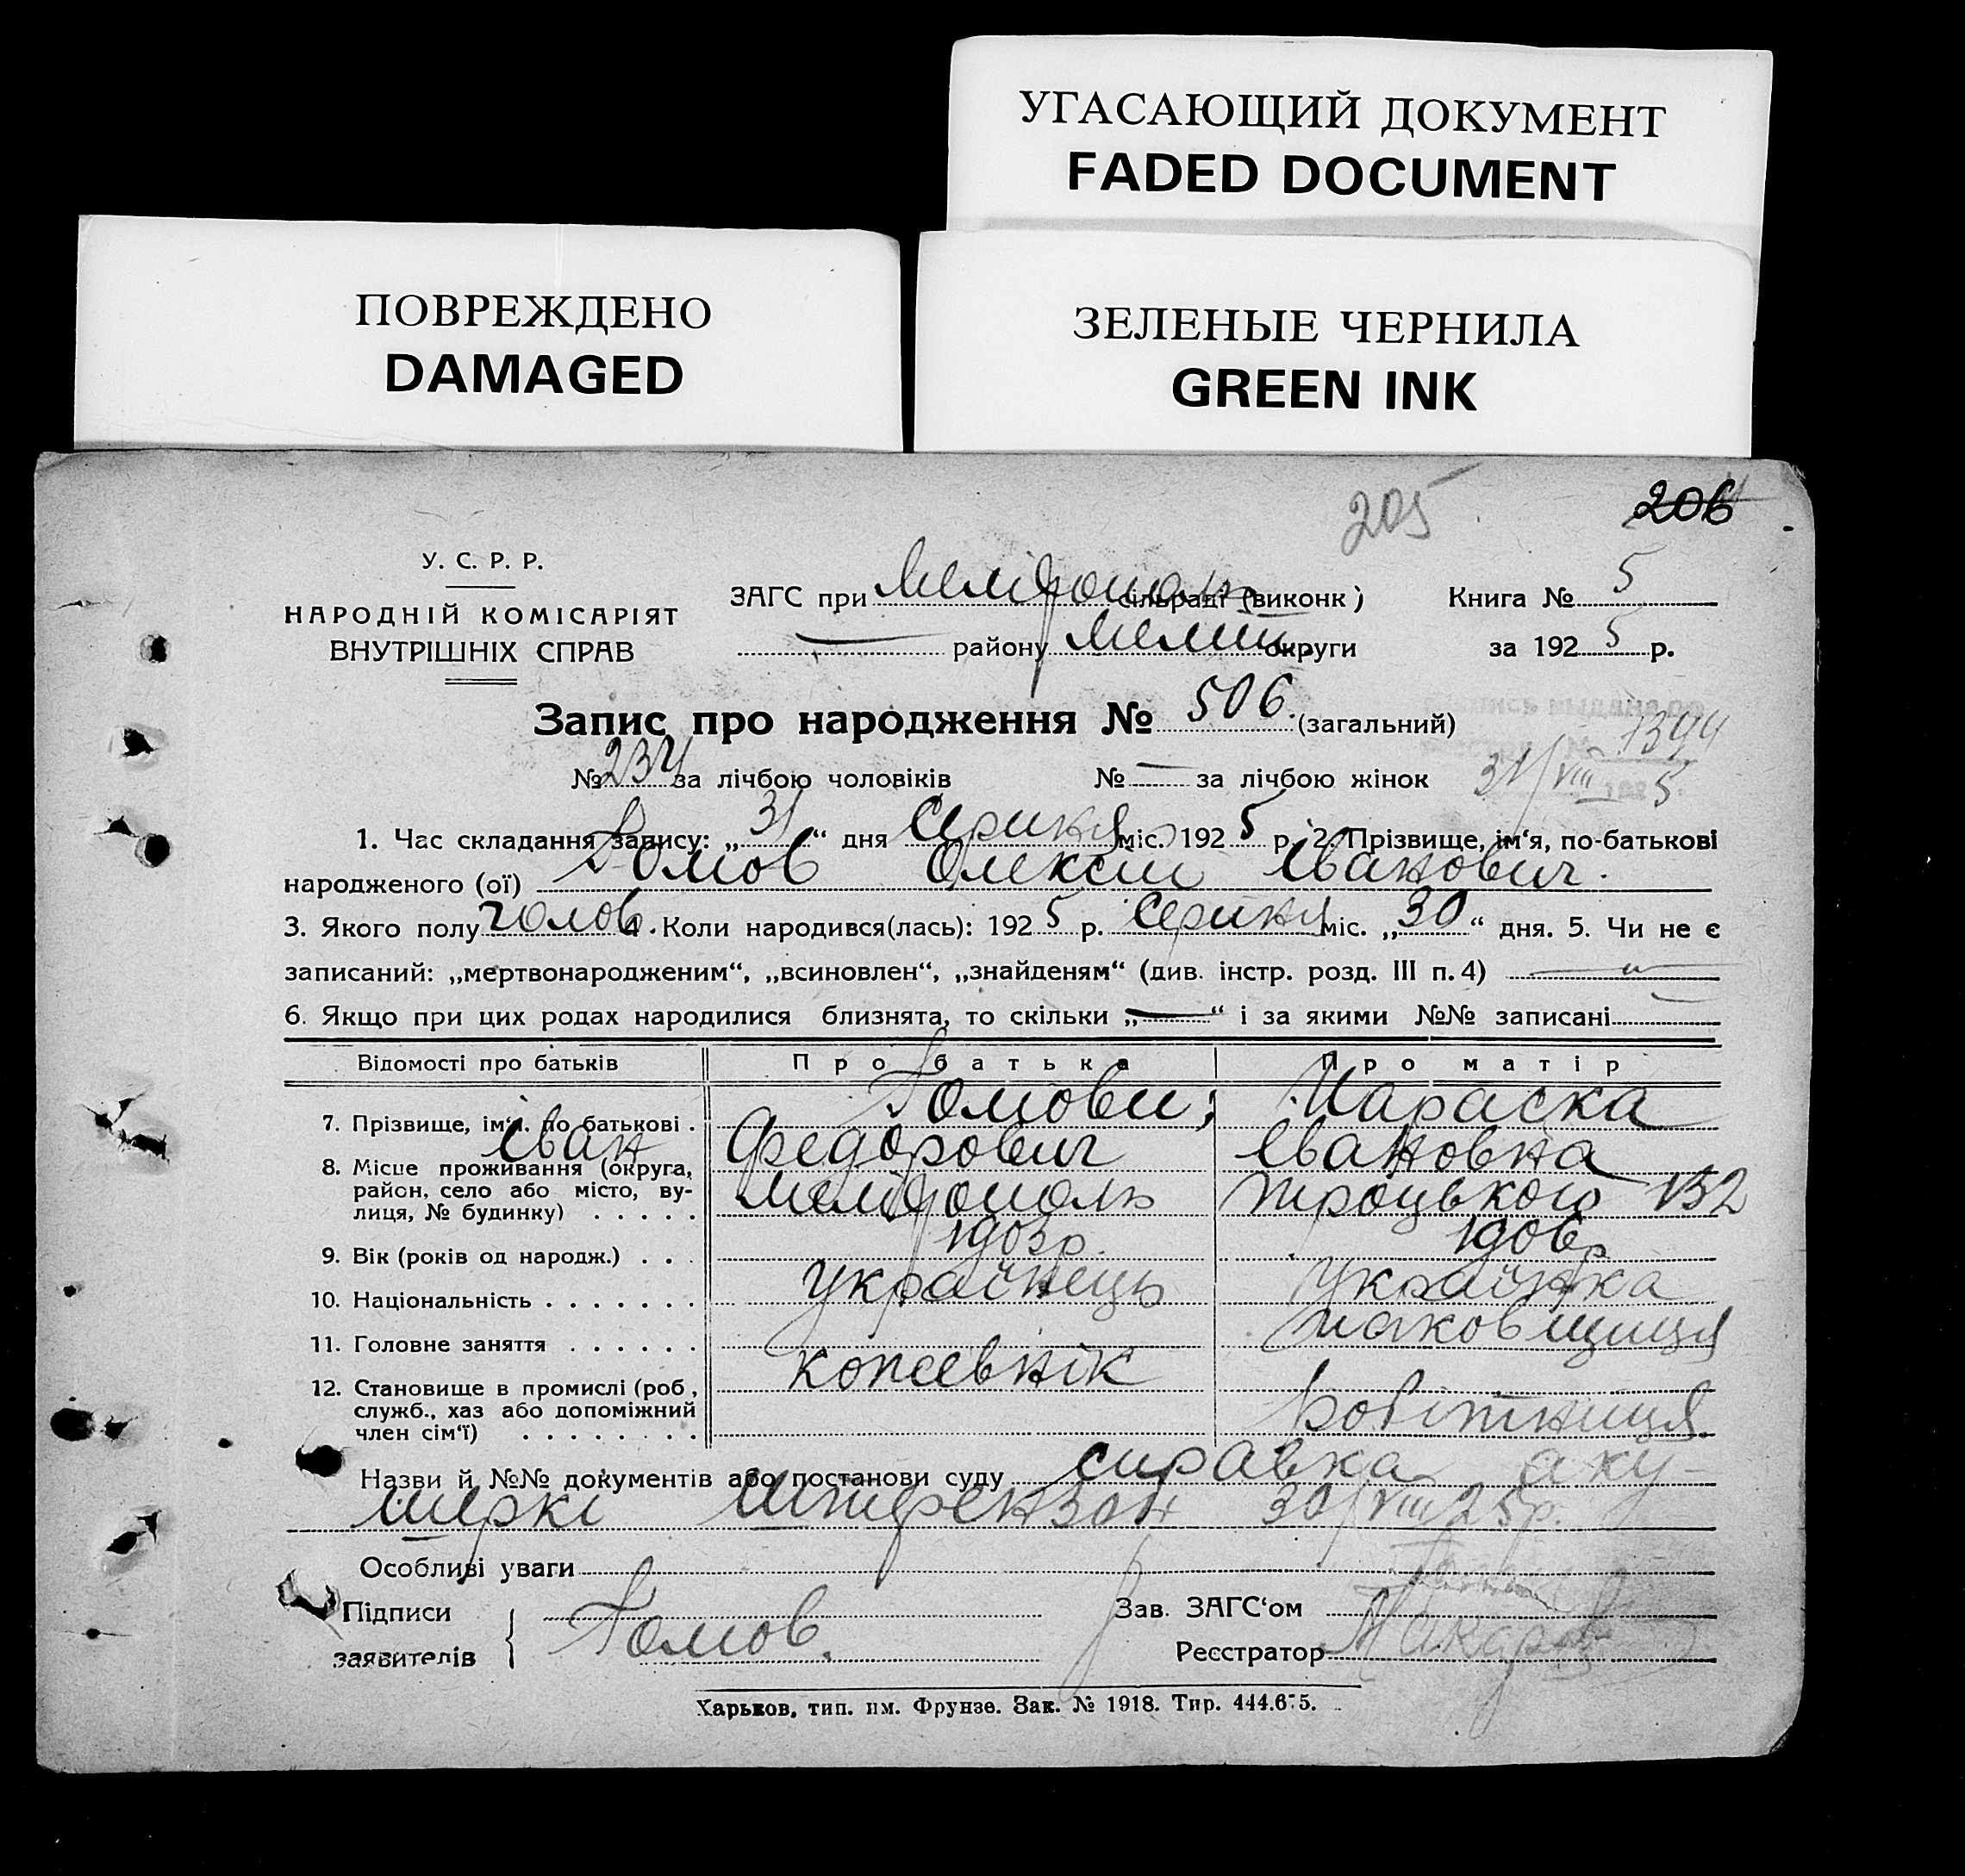 УГАСАЮЩИЙ ДОКУМЕНТ
FADED DOCUMENT
ПОВРЕЖДЕНО
DAMAGED
ЗЕЛЕНЫЕ ЧЕРНИЛА
GREEN INK
205 206
У. С. Р. Р.
НАРОДНІЙ КОМІСАРІЯТ
ВНУТРІШНІХ СПРАВ
ЗАГС при Мелітополь сільраді (виконк) Книга № 5
району Мелит. округи за 1925 р.
Запис про народження № 506. (загальний)
№ 234 за лічбою чоловіків № — за лічбою жінок
1394
31/VIII 1925
1. Час складання запису: „31“ дня Серпня міс. 1925 р. 2. Прізвище, ім‘я, по-батькові
народженого (ої) Гомов Олексій Іванович.
3. Якого полу чолов. 4. Коли народився(лась): 1925 р. Серпня міс. „30“ дня. 5. Чи не є
записаний: „мертвонародженим“, „всиновлен“, „знайденям“ (див. інстр. розд. III п. 4) —„—
6. Якщо при цих родах народилися близнята, то скільки „—“ і за якими №№ записані —
Відомості про батьків Про батька Про матір
7. Прізвище, ім‘я, по батькові . Гомови; Параска
Іван Федорович Івановна
8. Місце проживання (округа, район, село або місто, вулиця, № будинку) . . . . . Мелітополь Троцького 132
9. Вік (років од народж.) . . . 1903р. 1906р
10. Національність . . . . . . . українець українка
11. Головне заняття . . . . . . кожевнік
12. Становище в промислі (роб., служб., хаз або допоміжний член сім‘ї) . . . . . . . . Робітниця
Назви й №№ документів або постанови суду справка аку-
шерки Штерензон 30/VIII 25р.
Особливі уваги
Підписи
заявителів { Гомов.
Зав. ЗАГС‘ом
Реєстратор Макаров
Харьков, тип. им. Фрунзе. Зак. № 1918. Тир. 444.675.